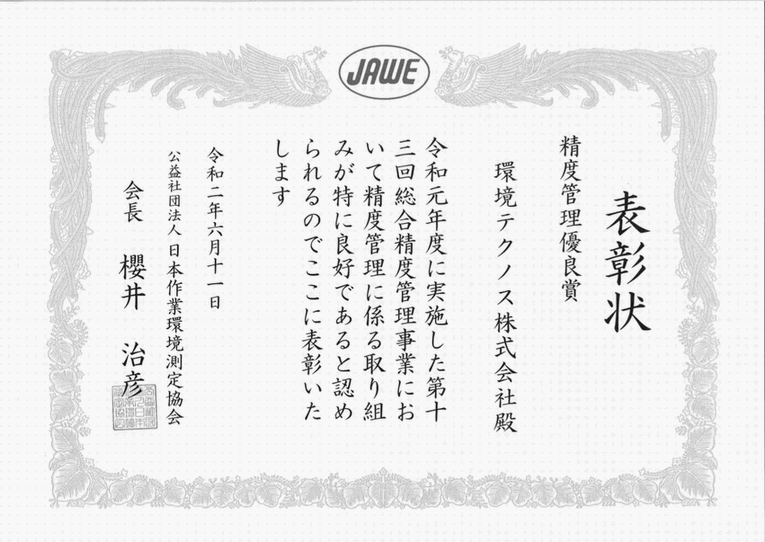 JAWE
表彰状
精度管理優良賞
環境テクノス株式会社殿
令和元年度に実施した第十
三回総合精度管理事業にお
いて精度管理に係る取り組
みが特に良好であると認め
られるのでここに表彰いた
します
令和二年六月十一日
公益社団法人 日本作業環境測定協会
会長 櫻井 治彦